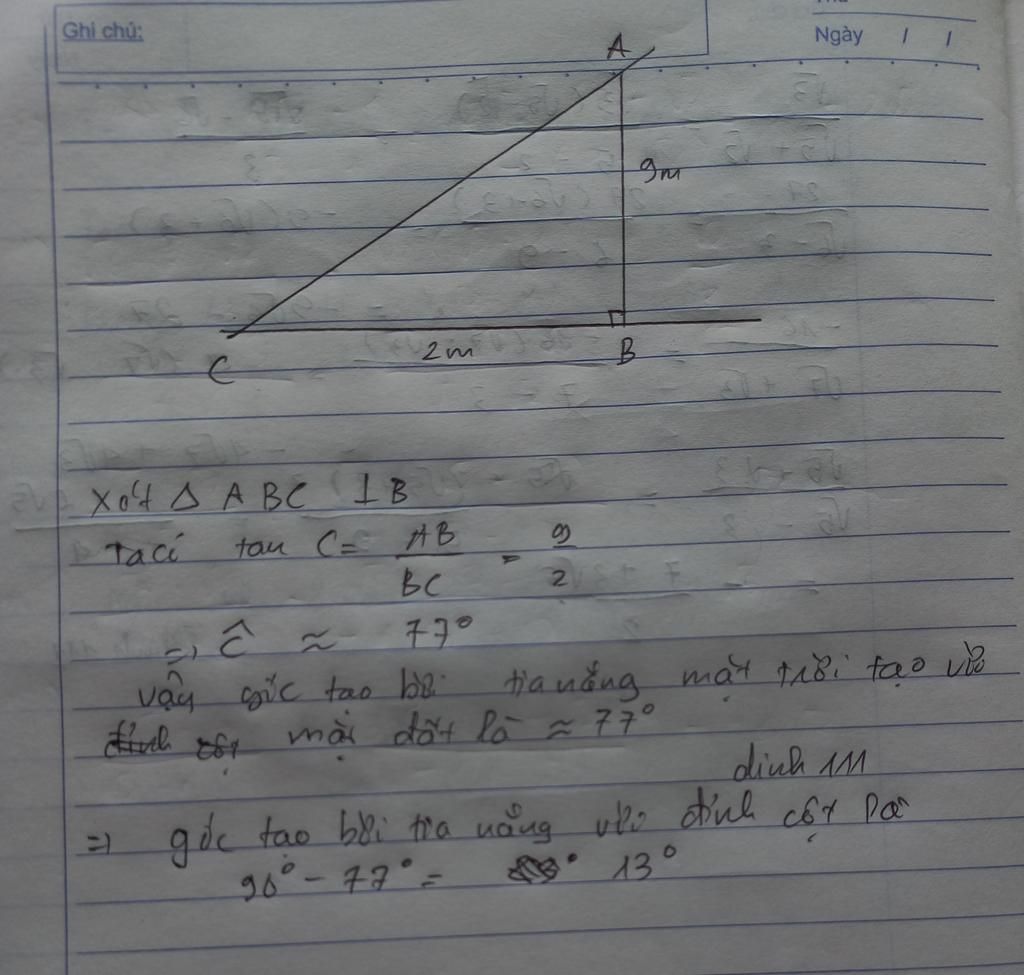 Ghi chú:
Ngày / /
A
9m
C 2m B
Xét Δ ABC ⊥ B
Ta có tan C = AB/BC = 9/2
=> Ĉ ≈ 77°
Vậy góc tạo bởi tia nắng mặt trời tạo với
mặt đất là ≈ 77°
=> góc tạo bởi tia nắng với đỉnh cột là
90° - 77° = 13°